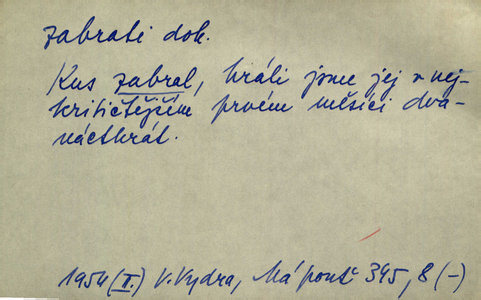 zabrati dok.
Kus zabral, hráli jsme jej v nej-
kritičtějším prvém měsíci dva-
náctkrát.
1954 (II.) V. Vydra, Má pouť 395, 8 (-)